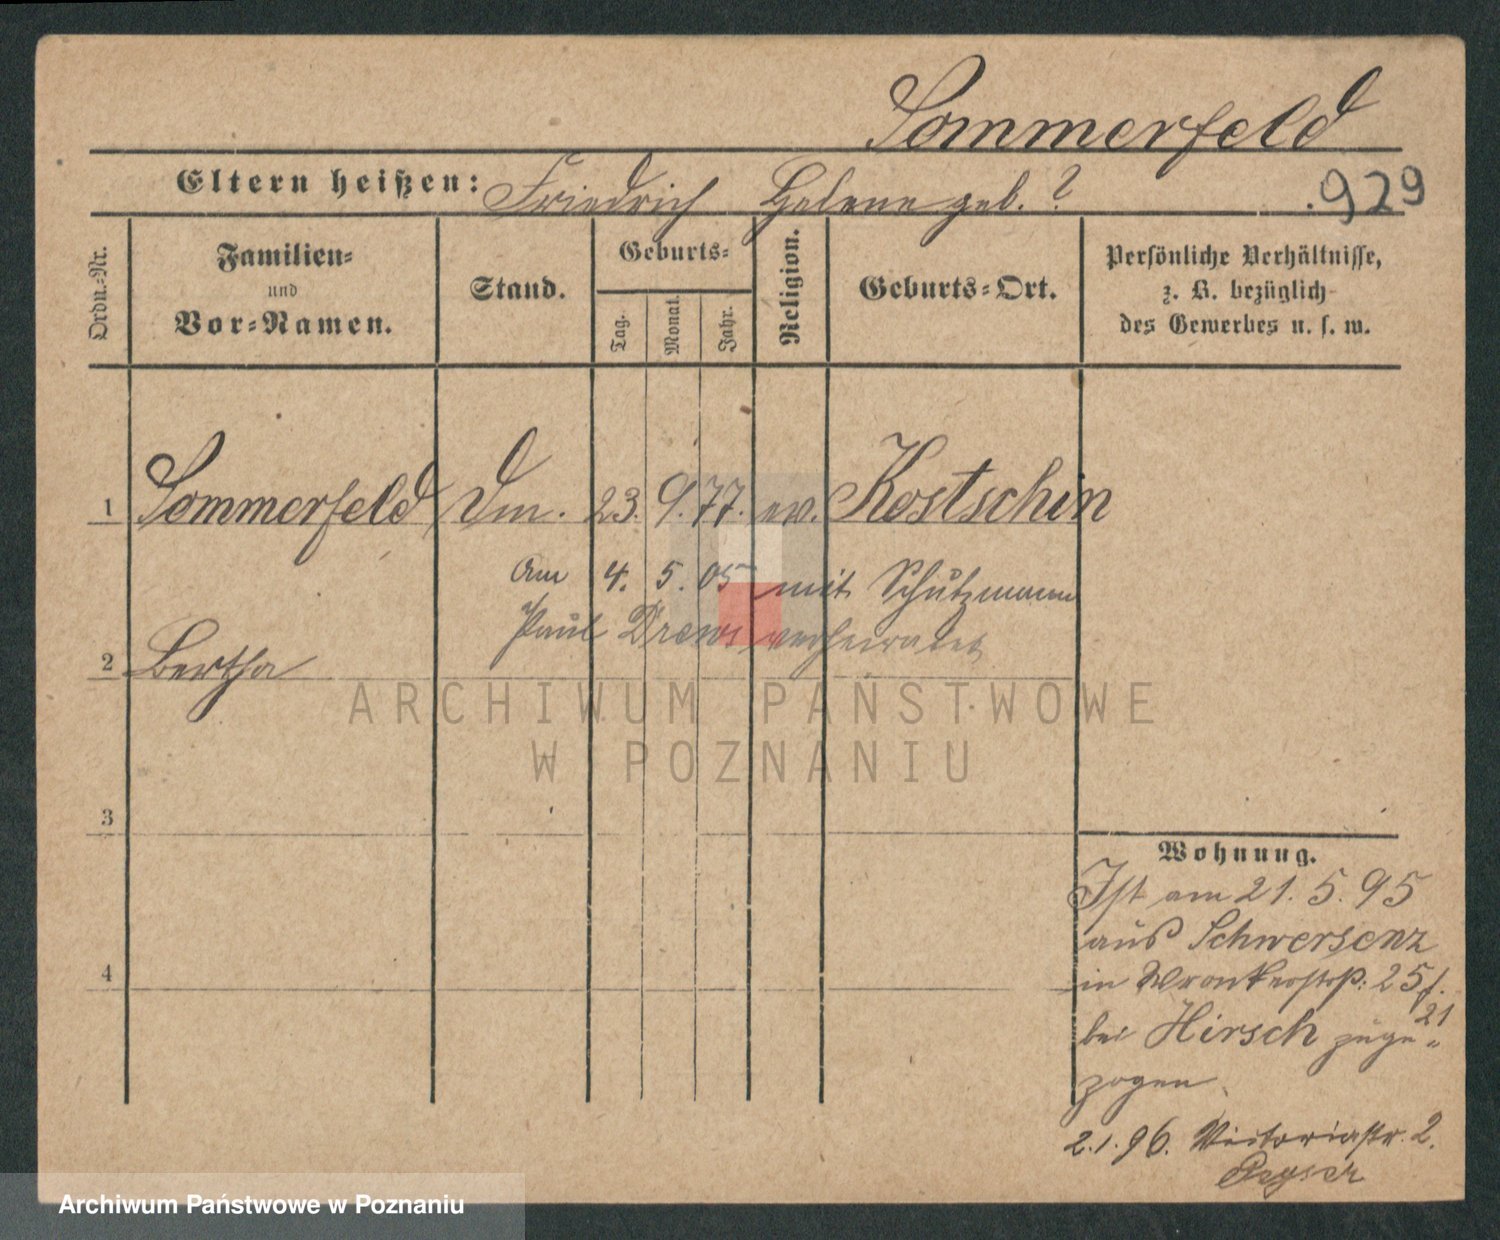 Sommerfeld
Eltern heißen: Friedrich Helene geb. ?
. 929
Ordn.-Nr.
Familien-
und
Vor-Namen.
Stand.
Geburts-
Tag.
Monat.
Jahr.
Religion.
Geburts-Ort.
Persönliche Verhältnisse,
z. B. bezüglich
des Gewerbes u. s. w.
1 Sommerfeld Dm. 23. 9. 77. ev. Kostschin
Am 4. 5. 05 mit Schutzmann
Paul Drews verheiratet
2 Bertha
ARCHIWUM PAŃSTWOWE
W POZNANIU
3
4
Wohnung.
Ist am 21. 5. 95
aus Schwersenz
in Wronkerstrß: 25
bei Hirsch zuge"
21
zogen
2. 1. 96. Victoriastr. 2.
Archiwum Państwowe w Poznaniu